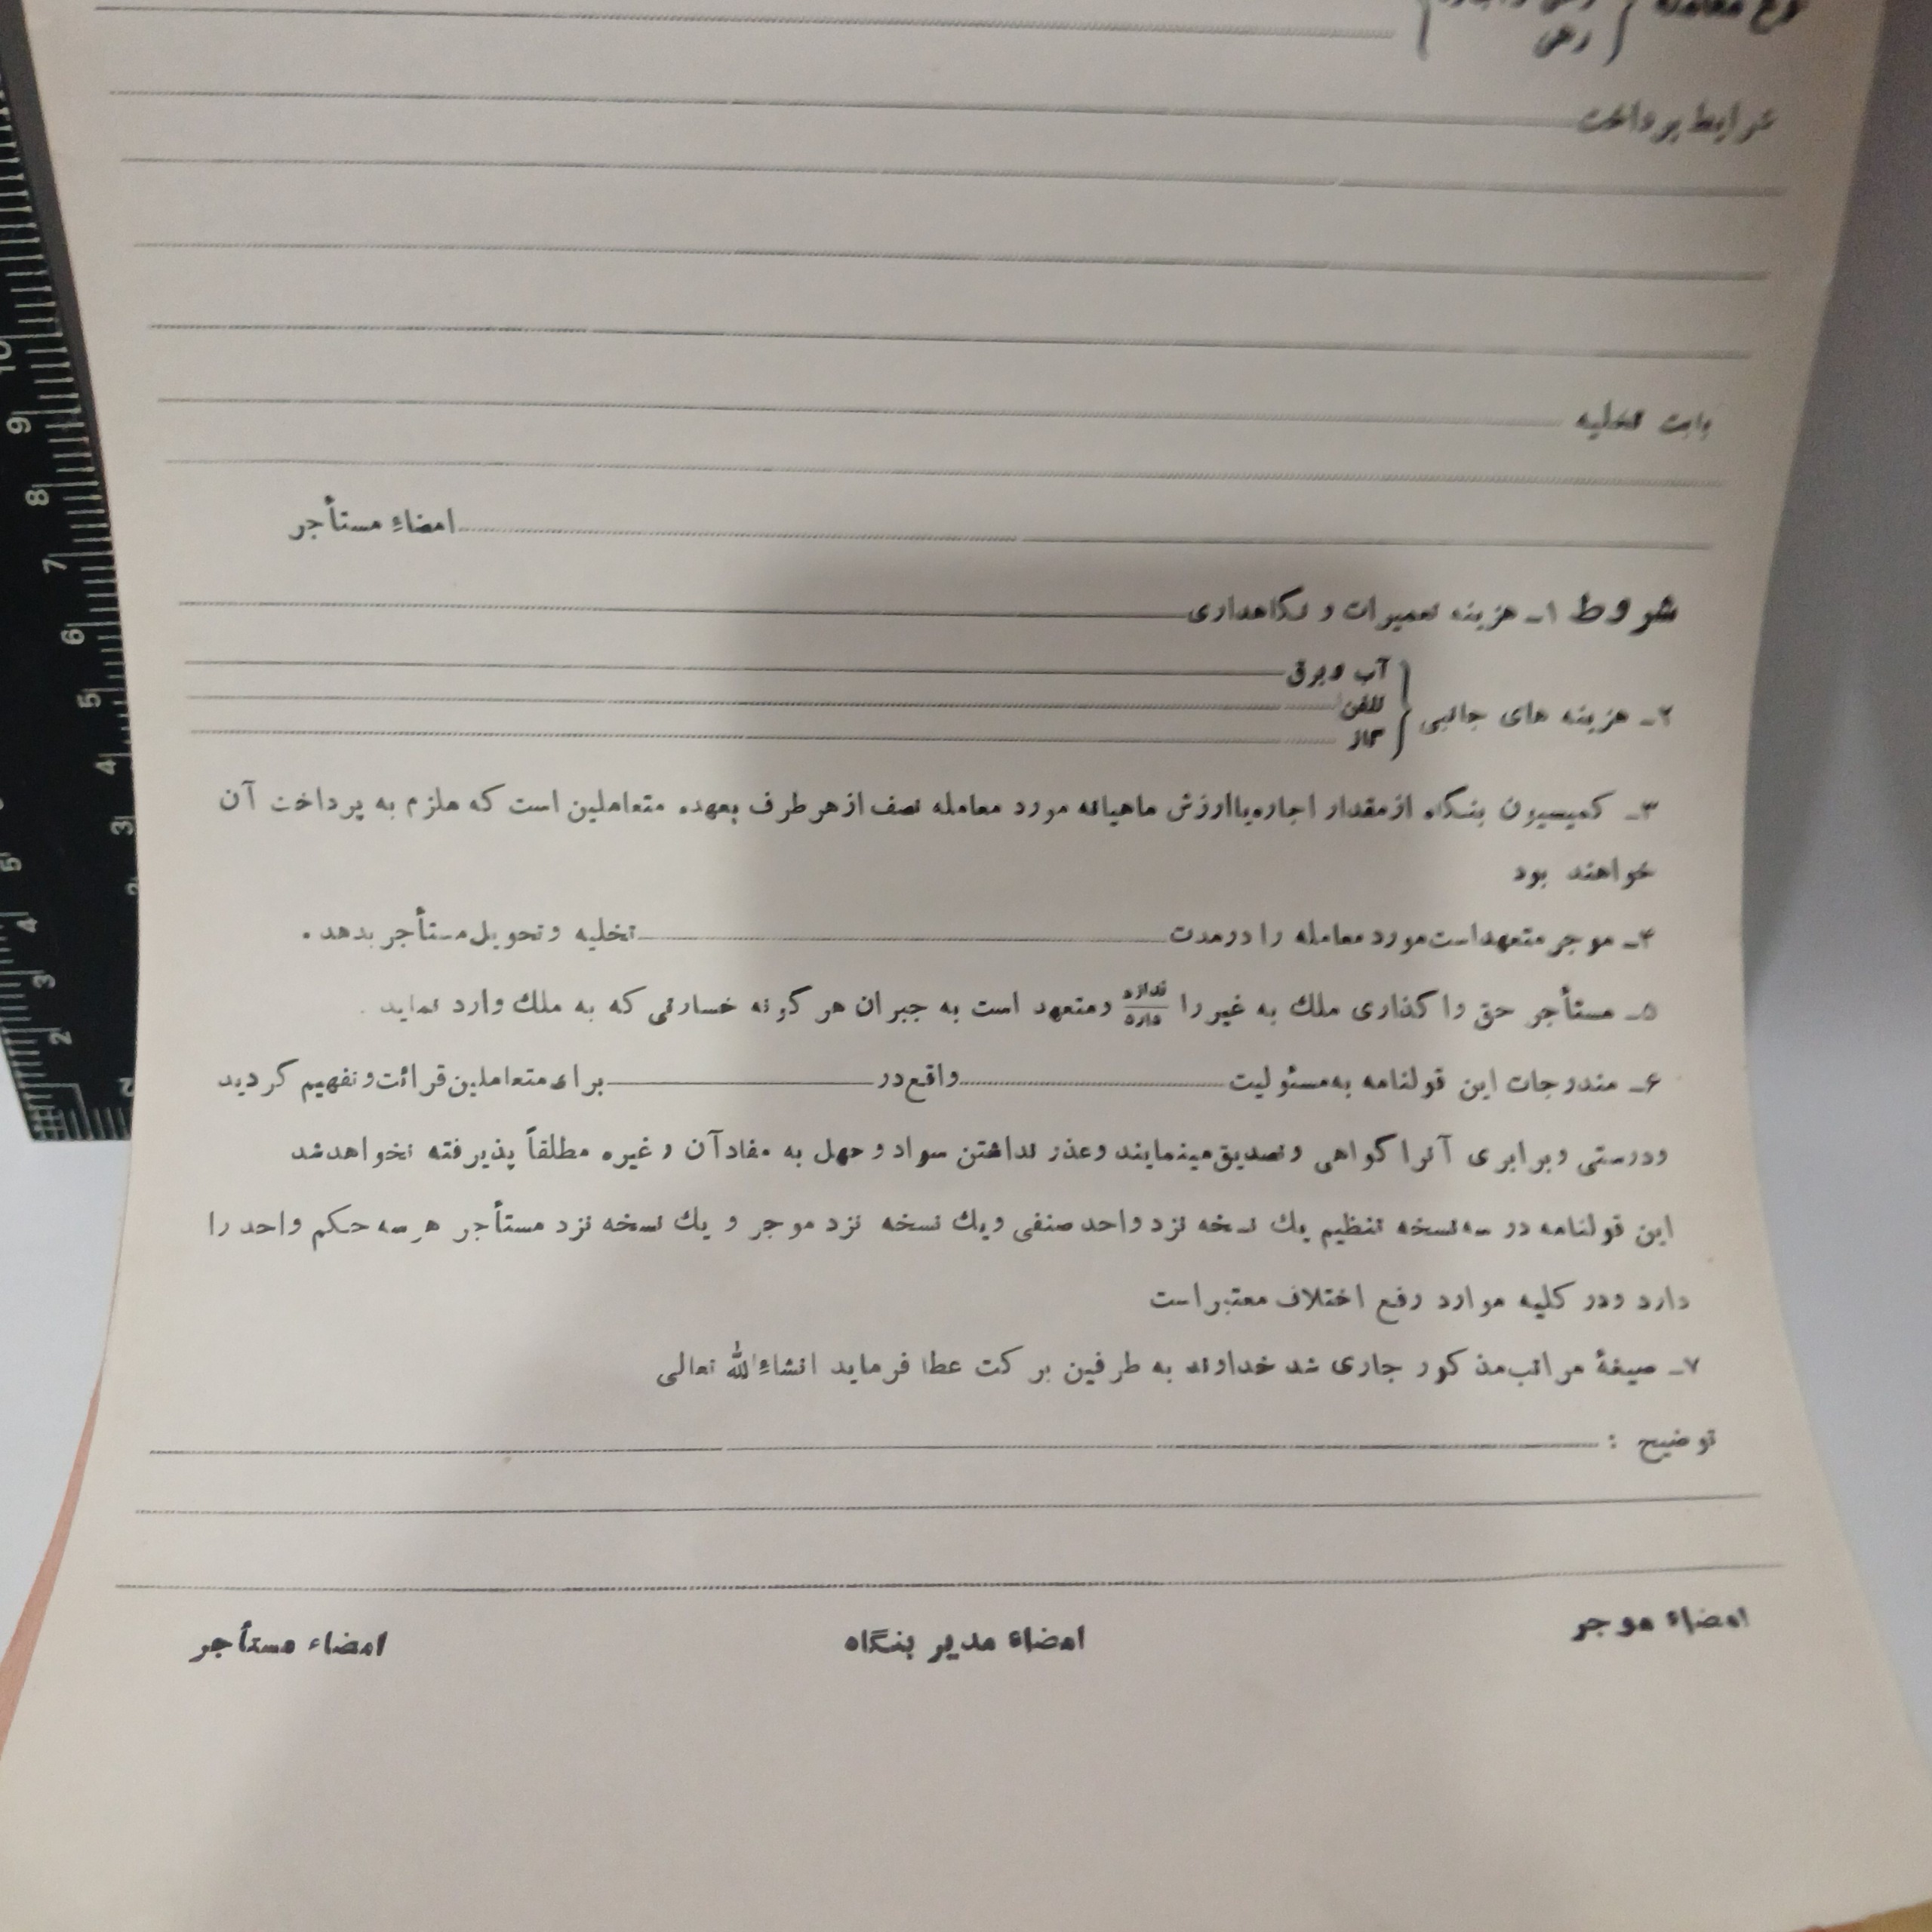 نوع معامله
رهنی
شرایط پرداخت
بابت تخلیه
امضاءِ مستأجر
شروط ۱ـ هزینه تعمیرات و نگاهداری
آب وبرق
۲ـ هزینه های جانبی
تلفن
گاز
۳ـ کمیسیون بنگاه ازمقدار اجاره‌یاارزش ماهیانه مورد معامله نصف ازهرطرف بعهده متعاملین است که ملزم به پرداخت آن
خواهند بود
۴ـ موجرمتعهداست‌مورد معامله را درمدت تخلیه وتحویل‌مستأجر بدهد .
۵ـ مستأجر حق واگذاری ملك به غیررا ندارد
دارد ومتعهد است به جبران هر گونه خسارتی که به ملك وارد نماید .
۶ـ مندرجات این قولنامه به‌مسئولیت واقع‌در برای‌متعاملین‌قرائت‌وتفهیم گردید
ودرستی وبرابری آنرا گواهی وتصدیق‌مینمایند وعذر نداشتن سواد وجهل به مفادآن وغیره مطلقاً پذیرفته نخواهدشد
این قولنامه در سه‌نسخه تنظیم یك نسخه نزد واحد صنفی ویك نسخه نزد موجر و یك نسخه نزد مستأجر هرسه حکم واحد را
دارد ودر کلیه موارد رفع اختلاف معتبراست
۷ـ صیغهٔ مراتب‌مذکور جاری شد خداوند به طرفین برکت عطا فرماید انشاءِالله تعالی
توضیح :
امضاء موجر
امضاء مدیر بنگاه
امضاء مستأجر